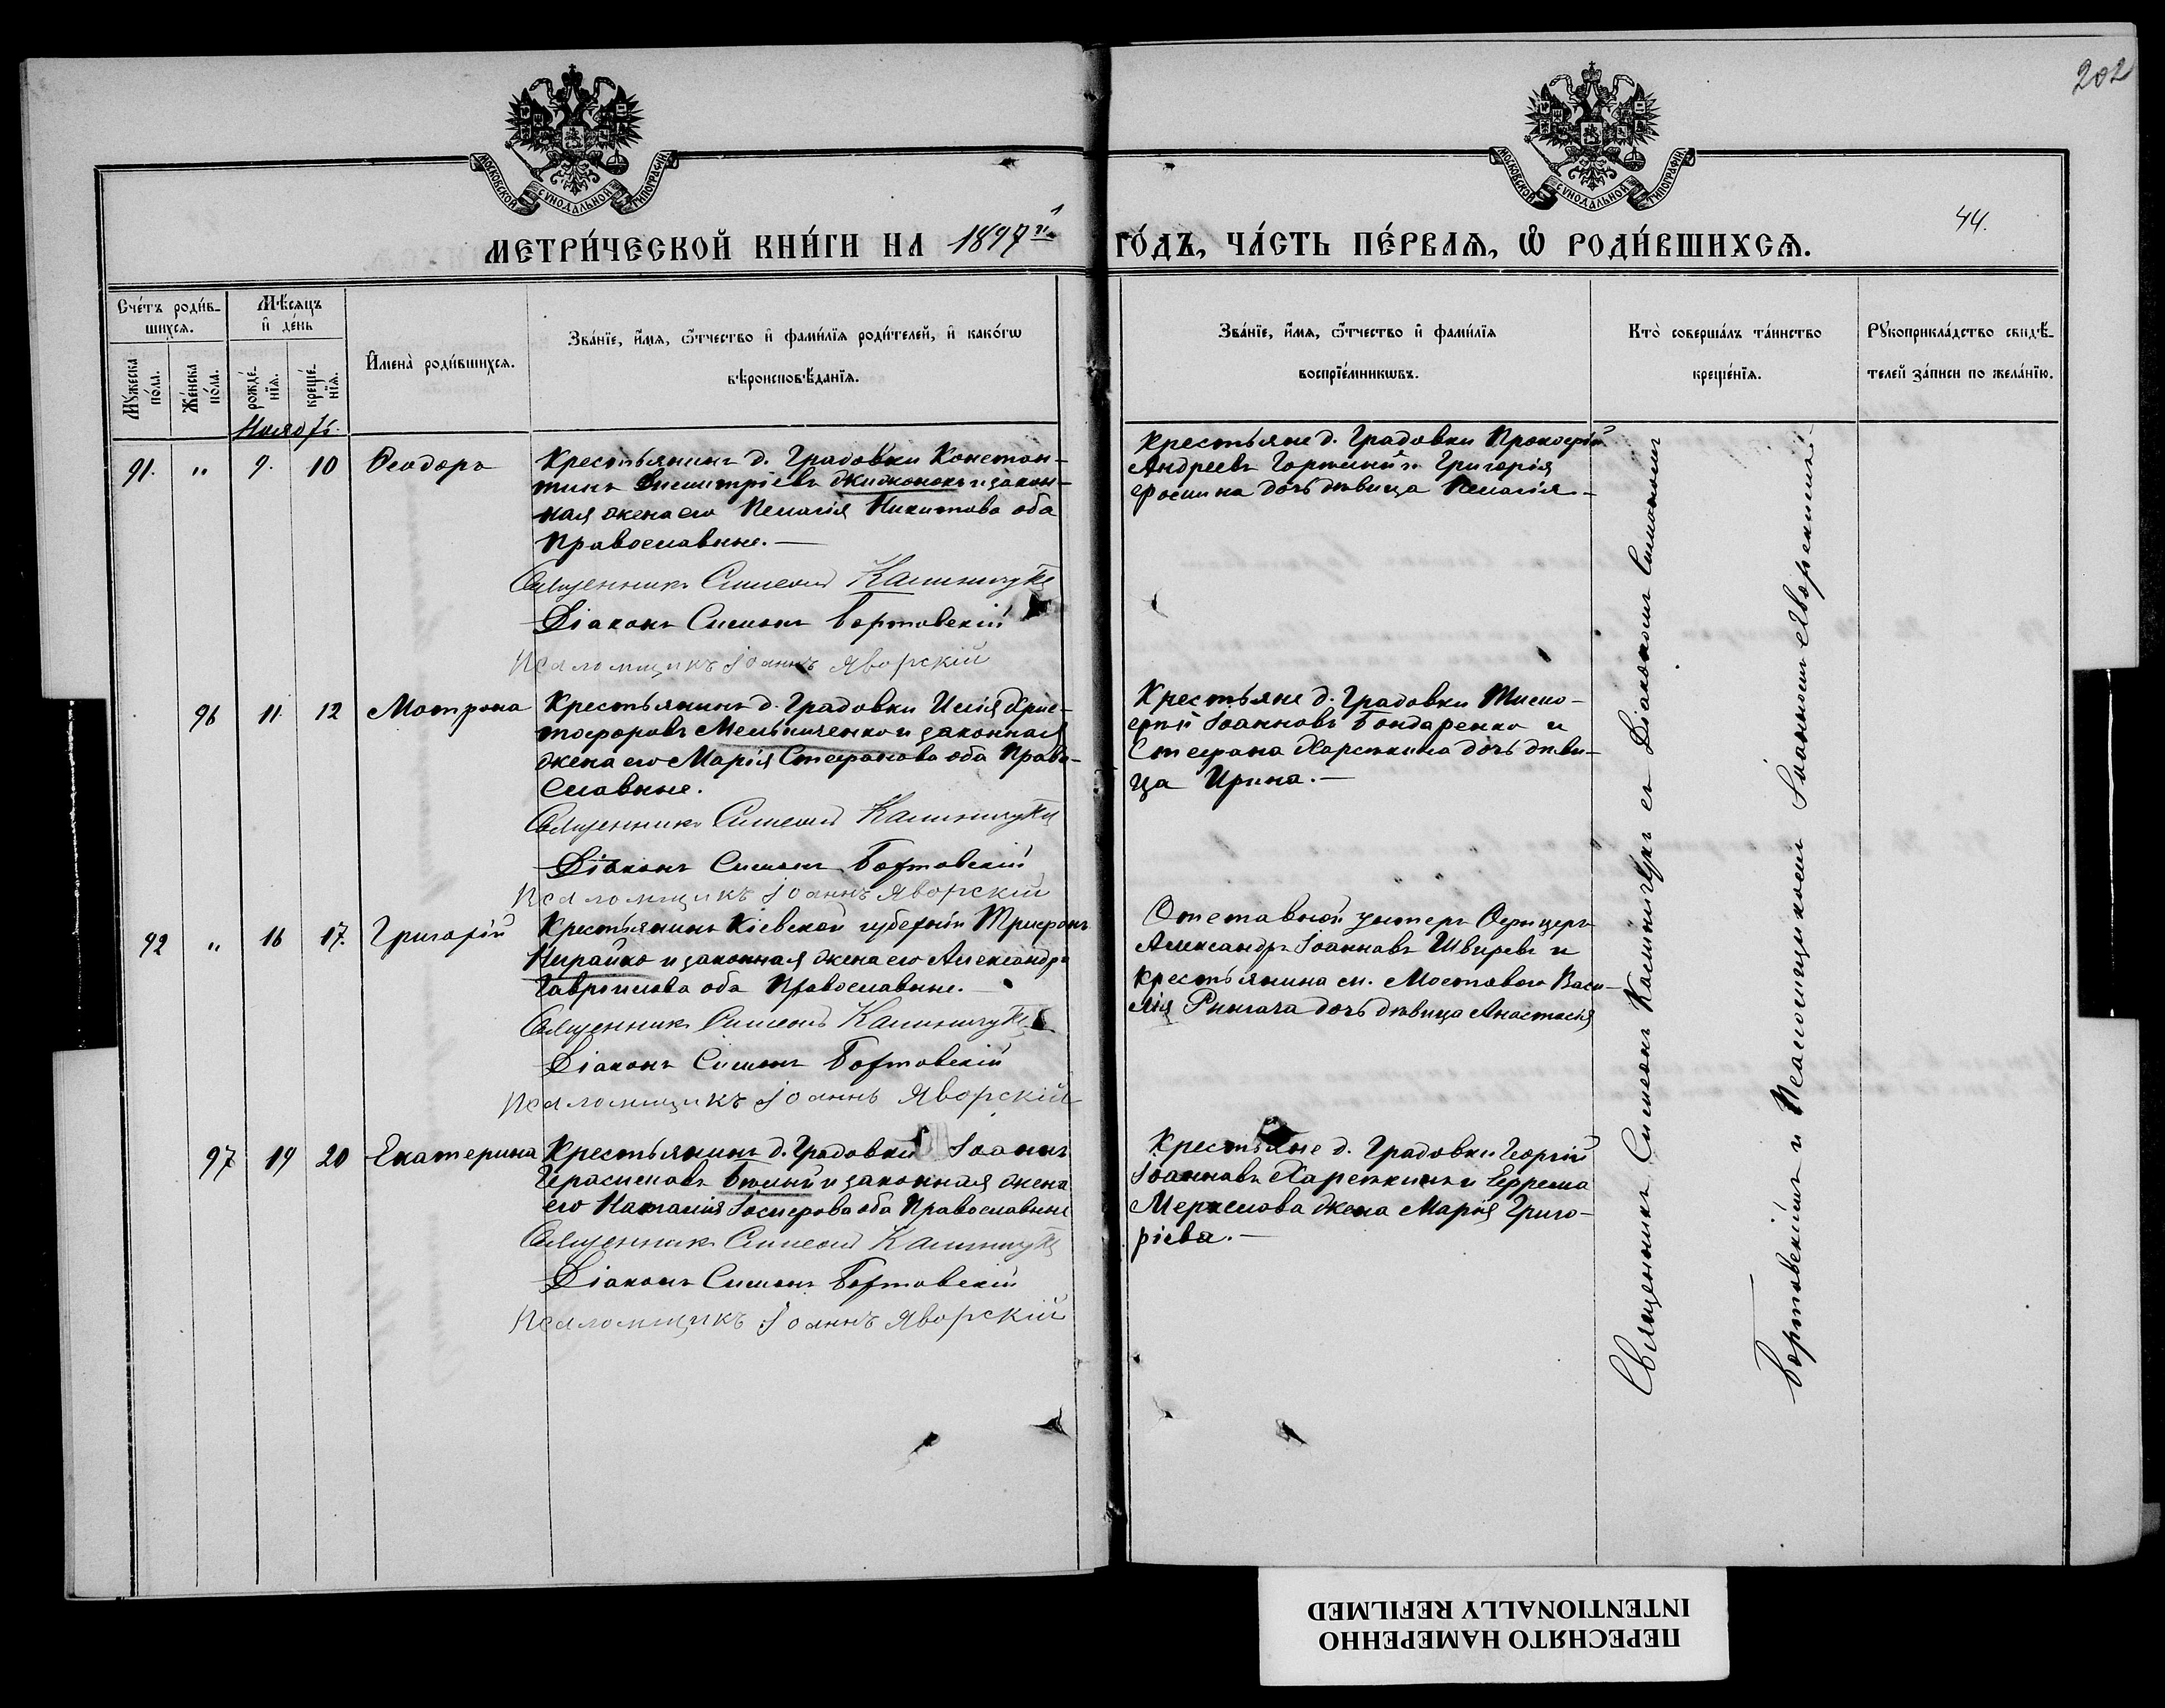 202
МОСКОВСКОЙ СУНОДАЛЬНОЙ ТИПОГРАФІИ
МОСКОВСКОЙ СУНОДАЛЬНОЙ ТИПОГРАФІИ
44.
МЕТРИ́ЧЕСКОЙ КНИ́ГИ НА 1897й
ГО́ДЪ, ЧА́СТЬ ПЕ́РВАЯ, Ѡ РОДИ́ВШИХСЯ.
Сче́тъ роди́в-
шихся.
Мꙋ́жеска по́ла.
Же́нска по́ла.
Мѣ́сяцъ и де́нь
рожде́-нїя.
креще́-нїя.
Имена̀ роди́вшихся.
Зва́нїе, и́мя, ѻ́тчество и фами́лїя роди́телей, и како́гѡ
вѣроисповѣ́данїя.
Зва́нїе, и́мя, ѻ́тчество и фами́лїя
воспрїе́мникѡвъ.
Кто̀ соверша́лъ та́инство
креще́нїя.
Рꙋкоприкла́дство свидѣ́-
телей за́писи по жела́нїю.
Ноябрь.
91. " 9. 10 Ѳеодоръ
Крестьянинъ д. Градовки Констан-
тинъ Димитріевъ и закон-
ная жена его Пелагія Никитова оба
Православные.—
Священникъ Симеонъ Калинчукъ
Діаконъ Симонъ Бортовскій
Псаломщикъ Іоаннъ Яворскій
Крестьяне д. Градовки Прокофій
Андреевъ и Григорія
дочь дѣвица Пелагія.—
96 11. 12 Матрона
Крестьянинъ д. Градовки Илія Хрис-
тофоровъ Мельниченко и законная
жена его Марія Стефанова оба Право-
славные.
Священникъ Симеонъ Калинчукъ
Діаконъ Симонъ Бортовскій
Псаломщикъ Іоаннъ Яворскій
Крестьяне д. Градовки Тимо-
фей Іоанновъ Бондаренко и
Стефана Харькина дочь дѣви-
ца Ирина.—
92 " 16 17. Григорій
Крестьянинъ Кіевской губерніи Трифонъ
Нирайко и законная жена его Александра
Гавріилова оба Православные.—
Священникъ Симеонъ Калинчукъ
Діаконъ Симонъ Бортовскій
Псаломщикъ Іоаннъ Яворскій
Отставной унтеръ Офицеръ
Александръ Іоанновъ Швыревъ и
крестьянина м. Мостового Васи-
лія дочь дѣвица Анастасія
97 19 20 Екатерина
Крестьянинъ д. Градовки Іоаннъ
Герасимовъ и законная жена
его Наталія Іосифова оба Православные
Священникъ Симеонъ Калинчукъ
Діаконъ Симонъ Бортовскій
Псаломщикъ Іоаннъ Яворскій
Крестьяне д. Градовки Георгій
Іоанновъ Харькинъ и Ефрема
Меркелова жена Марія Григо-
ріева.—
Священникъ Симеонъ Калинчукъ съ Діакономъ Симономъ
Бортовскимъ и Псаломщикомъ Іоанномъ Яворскимъ.
ПЕРЕСНЯТО НАМЕРЕННО
INTENTIONALLY REFILMED